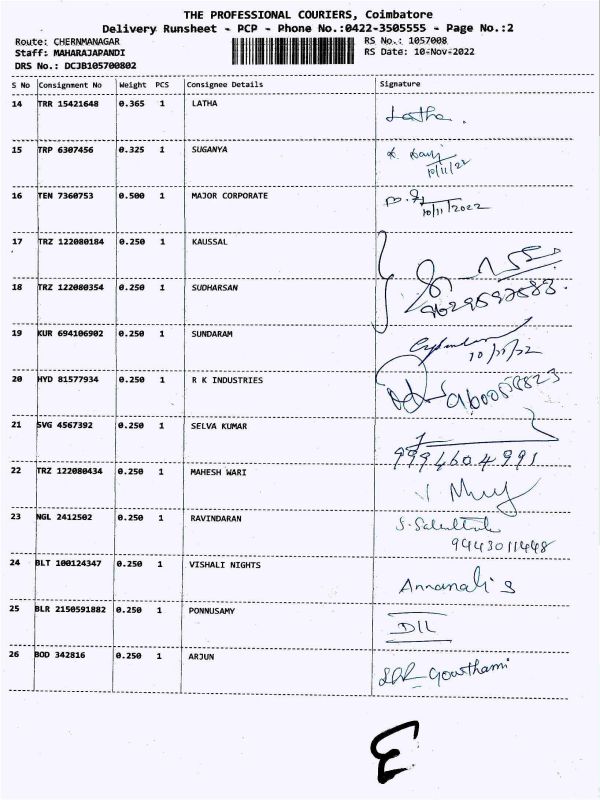 THE PROFESSIONAL COURIERS, Coimbatore
Delivery Runsheet - PCP - Phone No.:0422-3505555 - Page No.:2
Route: CHERNMANAGAR RS No.: 1057008
Staff: MAHARAJAPANDI RS Date: 10-Nov-2022
DRS No.: DCJB105700802
S No Consignment No Weight PCS Consignee Details Signature
14 TRR 15421648 0.365 1 LATHA
Latha.
15 TRP 6307456 0.325 1 SUGANYA
10/11/22
16 TEN 7360753 0.500 1 MAJOR CORPORATE
10/11/2022
17 TRZ 122080184 0.250 1 KAUSSAL
18 TRZ 122080354 0.250 1 SUDHARSAN
19 KUR 694106902 0.250 1 SUNDARAM
20 HYD 81577934 0.250 1 R K INDUSTRIES
21 SVG 4567392 0.250 1 SELVA KUMAR
9994604991
22 TRZ 122080434 0.250 1 MAHESH WARI
23 NGL 2412502 0.250 1 RAVINDARAN
9443011448
24 BLT 100124347 0.250 1 VISHALI NIGHTS
Annamali S
25 BLR 2150591882 0.250 1 PONNUSAMY
26 BOD 342816 0.250 1 ARJUN
Gowthami
3